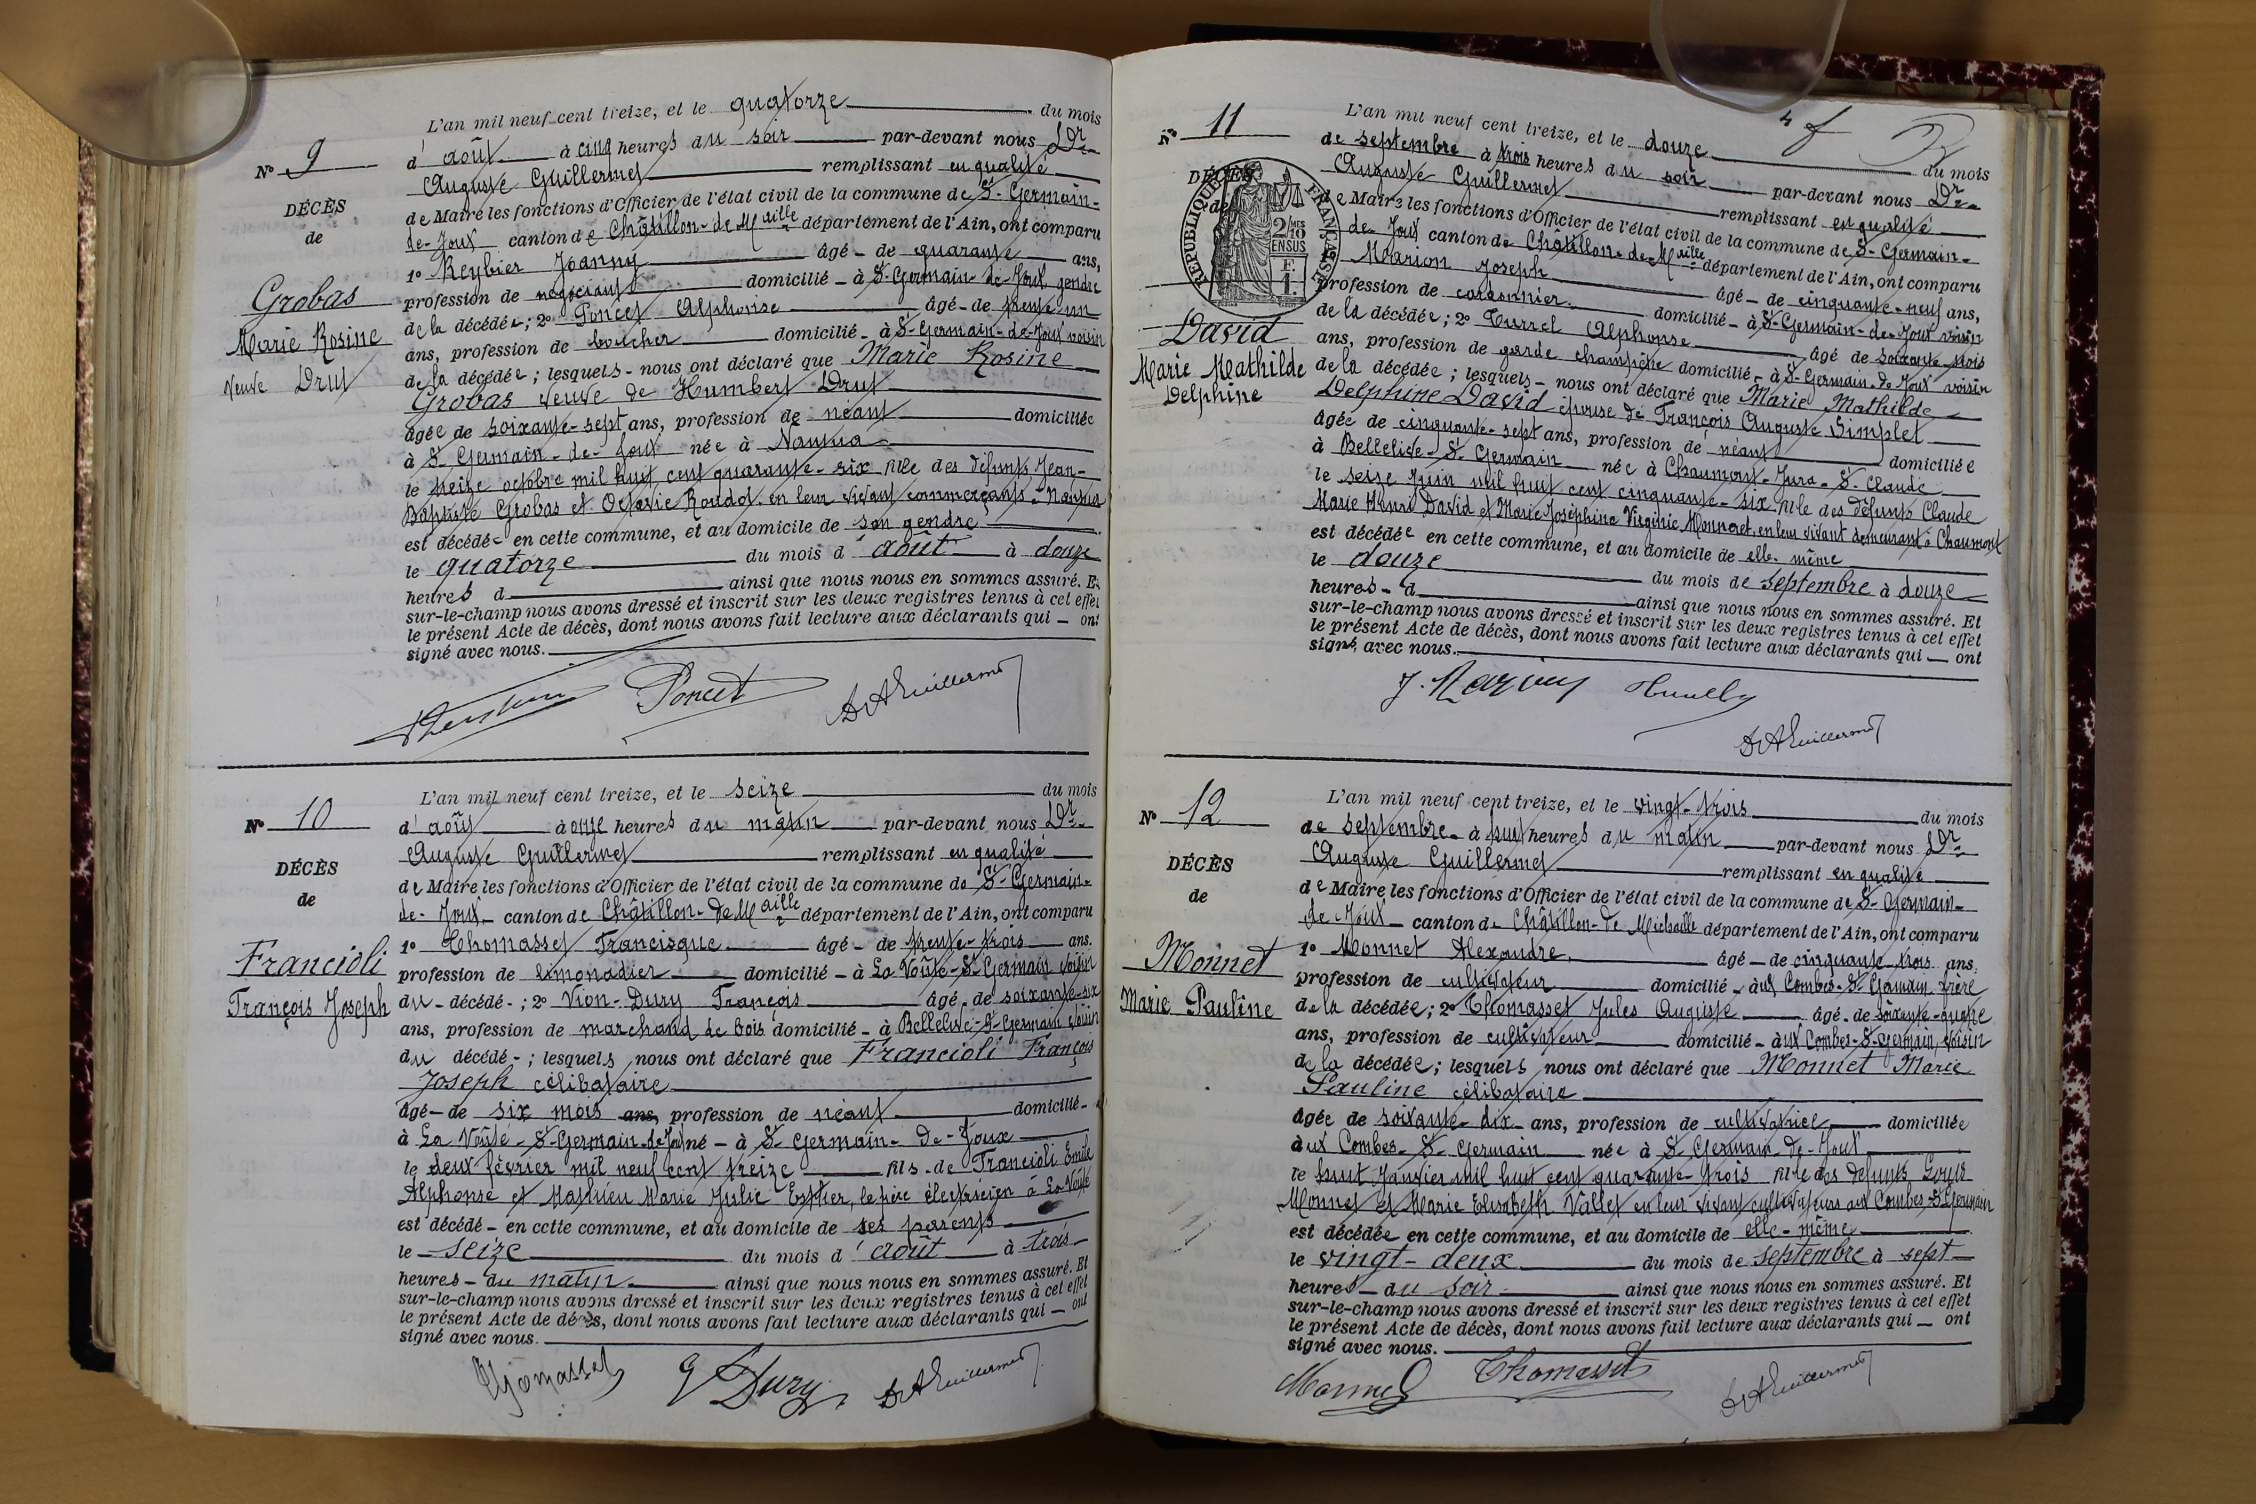 N° 9
DÉCÈS
de
Grobas
Marie Rosine
Veuve Drut
L'an mil neuf cent treize, et le quatorze du mois
d'août à cinq heures du soir par-devant nous Dr
Auguste Guillermet remplissant en qualité
de Maire les fonctions d'Officier de l'état civil de la commune de St-Germain-
de-Joux canton de Châtillon-de-Maille département de l'Ain, ont comparu
1° Reybier Joanny âgé de quarante ans,
profession de négociant domicilié à St-Germain-de-Joux gendre
de la décédée; 2° Poncet Alphonse âgé de trente-un
ans, profession de boucher domicilié à St-Germain-de-Joux voisin
de la décédée; lesquels nous ont déclaré que Marie Rosine
Grobas veuve de Humbert Drut
âgée de soixante-sept ans, profession de néant domiciliée
à St Germain-de-Joux née à Nantua
le treize octobre mil huit cent quarante-six fille des défunts Jean-
Baptiste Grobas et Octavie Roudot en leur vivant commerçants à Nantua
est décédée en cette commune, et au domicile de son gendre
le quatorze du mois d'août à douze
heures d ainsi que nous nous en sommes assuré. Et
sur-le-champ nous avons dressé et inscrit sur les deux registres tenus à cet effet
le présent Acte de décès, dont nous avons fait lecture aux déclarants qui ont
signé avec nous.
Poncet DrAGuillermet
N° 10
DÉCÈS
de
Francioli
François Joseph
L'an mil neuf cent treize, et le seize du mois
d'août à onze heures du matin par-devant nous Dr
Auguste Guillermet remplissant en qualité
de Maire les fonctions d'Officier de l'état civil de la commune de St-Germain-
de-Joux canton de Châtillon-de-Maille département de l'Ain, ont comparu
1° Thomasset Francisque âgé de trente-trois ans.
profession de limonadier domicilié à La Voûte-St Germain voisin
du décédé; 2° Vion-Dury François âgé de soixante-six
ans, profession de marchand de bois domicilié à Bellelive-St-Germain voisin
du décédé; lesquels nous ont déclaré que Francioli François
Joseph célibataire
âgé de six mois ans, profession de néant domicilié
à La Voûte-St-Germain-de-Joux né à St-Germain-de-Joux
le deux février mil neuf cent treize fils de Francioli Emile
Alphonse et Mathieu Marie Julie Esther, le père électricien à La Voûte
est décédé en cette commune, et au domicile de ses parents
le seize du mois d'août à trois
heures du matin ainsi que nous nous en sommes assuré. Et
sur-le-champ nous avons dressé et inscrit sur les deux registres tenus à cet effet
le présent Acte de décès, dont nous avons fait lecture aux déclarants qui ont
signé avec nous.
Thomasset Dury DrAGuillermet
4 f
N° 11
DÉCÈS
de
RÉPUBLIQUE FRANÇAISE
2/10 MES
EN SUS
F.
1.
David
Marie Mathilde
Delphine
L'an mil neuf cent treize, et le douze du mois
de septembre à trois heures du soir par-devant nous Dr
Auguste Guillermet remplissant en qualité
de Maire les fonctions d'Officier de l'état civil de la commune de St-Germain-
de-Joux canton de Châtillon-de-Maille département de l'Ain, ont comparu
Marion Joseph âgé de cinquante-neuf ans,
profession de cordonnier domicilié à St-Germain-de-Joux voisin
de la décédée; 2° Turrel Alphonse âgé de soixante-trois
ans, profession de garde champêtre domicilié à St-Germain-de-Joux voisin
de la décédée; lesquels nous ont déclaré que Marie Mathilde
Delphine David épouse de François Auguste Simplet
âgée de cinquante-sept ans, profession de néant domiciliée
à Bellelive-St-Germain née à Chaumont-Jura-St-Claude
le seize juin mil huit cent cinquante-six fille des défunts Claude
Marie Henri David et Marie Joséphine Virginie Monneret, en leur vivant demeurant à Chaumont
est décédée en cette commune, et au domicile de elle-même
le douze du mois de septembre à douze
heures d ainsi que nous nous en sommes assuré. Et
sur-le-champ nous avons dressé et inscrit sur les deux registres tenus à cet effet
le présent Acte de décès, dont nous avons fait lecture aux déclarants qui ont
signé avec nous.
J. Marion
DrAGuillermet
N° 12
DÉCÈS
de
Monnet
Marie Pauline
L'an mil neuf cent treize, et le vingt-trois du mois
de septembre à huit heures du matin par-devant nous Dr
Auguste Guillermet remplissant en qualité
de Maire les fonctions d'Officier de l'état civil de la commune de St-Germain-
de-Joux canton de Châtillon-de-Michaille département de l'Ain, ont comparu
1° Monnet Alexandre âgé de cinquante trois ans,
profession de cultivateur domicilié aux Combes-St-Germain frère
de la décédée; 2° Thomasset Jules Auguste âgé de soixante-quatre
ans, profession de cultivateur domicilié aux Combes-St-Germain, voisin
de la décédée; lesquels nous ont déclaré que Monnet Marie
Pauline célibataire
âgée de soixante-dix ans, profession de cultivatrice domiciliée
aux Combes-St-Germain née à St Germain-de-Joux
le huit Janvier mil huit cent quarante-trois fille des défunts Louis
Monnet et Marie Elisabeth Vallet en leur vivant cultivateurs aux Combes-St-Germain
est décédée en cette commune, et au domicile de elle-même
le vingt-deux du mois de septembre à sept
heures du soir ainsi que nous nous en sommes assuré. Et
sur-le-champ nous avons dressé et inscrit sur les deux registres tenus à cet effet
le présent Acte de décès, dont nous avons fait lecture aux déclarants qui ont
signé avec nous.
Monnet Thomasset DrAGuillermet